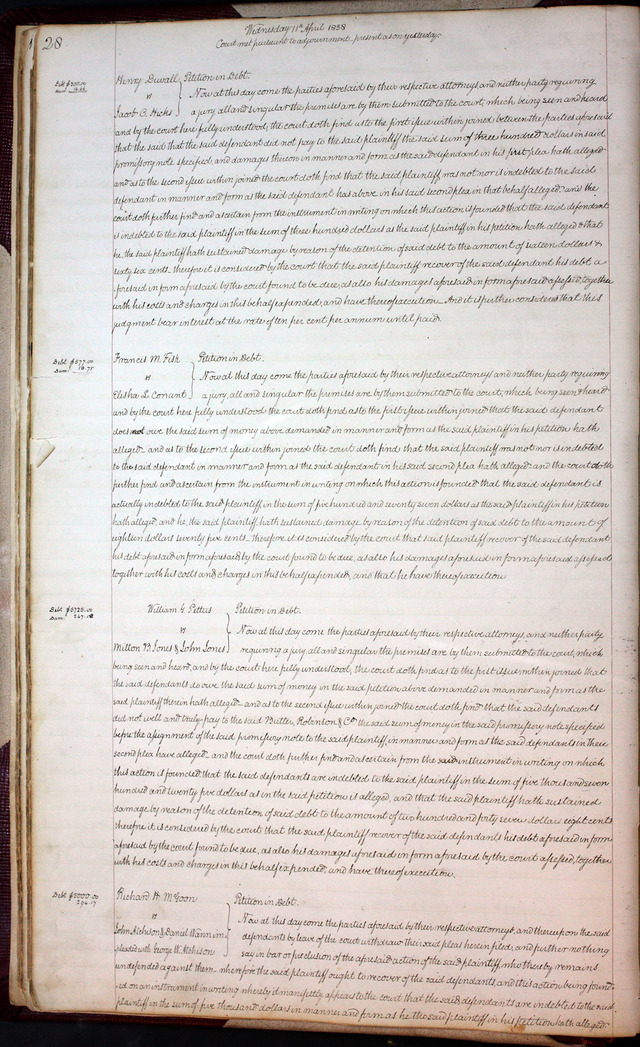 28
Wednesday 11th April 1838
Court met pursuant to adjournment. present as on yesterday.
Debt $300.00
Dam 16.66
Henry Duvall } Petition in Debt.
vs
Now at this day come the parties aforesaid by their respective attorneys and neither party requiring
Jacob C. Hicks
a jury all and singular the premises are by them submitted to the court, which being seen and heard
and by the court here fully understood, the court doth find as to the first issue within joined between the parties aforesaid
that the said that the said defendant did not pay to the said plaintiff the said sum of three hundred dollars in said
promissory note specified, and damages thereon in manner and form as the said defendant in his first plea hath alleged
and as to the second issue within joined the court doth find that the said plaintiff was not nor is indebted to the said
defendant in manner and form as the said defendant has above in his said second plea in that behalf alleged. and the
court doth further find and ascertain from the instrument in writing on which this action is founded that the said defendant
is indebted to the said plaintiff in the sum of three hundred dollars as the said plaintiff in his petition hath alleged & that
he, the said plaintiff hath sustained damage by reason of the detention of said debt to the amount of sixteen dollars &
sixty six cents. therefore it is considered by the court that the said plaintiff recover of the said defendant his debt a
foresaid in form aforesaid by the court found to be due, as also his damages aforesaid in form aforesaid assessed, together
with his costs and charges in this behalf expended, and have thereof execution. And it is further considered that this
judgment bear interest at the rate of ten per cent per annum until paid.
Debt $577.00
Dam 18.75
Francis M. Fish } Petition in Debt.
vs
Now at this day come the parties aforesaid by their respective attorneys and neither party requiring
Elisha L. Conant
a jury, all and singular the premises are by them submitted to the court, which being seen & heard
and by the court here fully understood the court doth find as to the first issue within joined that the said defendant
does not owe the said sum of money above demanded in manner and form as the said plaintiff in his petition hath
alleged. and as to the second issue within joined the court doth find that the said plaintiff was not nor is indebted
to the said defendant in manner and form as the said defendant in his said second plea hath alleged. and the court doth
further find and ascertain from the instrument in writing on which this action is founded that the said defendant is
actually indebted to the said plaintiff in the sum of five hundred and seventy seven dollars as the said plaintiff in his petition
hath alleged, and he, the said plaintiff hath sustained damage by reason of the detention of said debt to the amount of
eighteen dollars seventy five cents. therefore it is considered by the court that said plaintiff recover of the said defendant
his debt aforesaid in form aforesaid by the court found to be due, as also his damages aforesaid in form aforesaid assessed
together with his costs and charges in this behalf expended, and that he have thereof execution.
Debt $5725.00
Dam 247.08
William G. Pettus } Petition in Debt.
vs
Now at this day come the parties aforesaid by their respective attorneys, and neither party
Milton B. Jones & John Jones
requiring a jury, all and singular the premises are by them submitted to the court, which
being seen and heard, and by the court here fully understood, the court doth find as to the first issue within joined that
the said defendants do owe the said sum of money in the said petition above demanded in manner and form as the
said plaintiff therein hath alleged. and as to the second issue within joined the court doth find that the said defendants
did not well and truly pay to the said Butler, Robinson & Co the said sum of money in the said promissory note specified
before the assignment of the said promissory note to the said plaintiff, in manner and form as the said defendants in their
second plea have alleged. and the court doth further find and ascertain from the said instrument in writing on which
this action is founded that the said defendants are indebted to the said plaintiff in the sum of five thousand seven
hundred and twenty five dollars as in the said petition is alleged, and that the said plaintiff hath sustained
damage by reason of the detention of said debt to the amount of two hundred and forty seven dollars eight cents
therefore it is considered by the court that the said plaintiff recover of the said defendants his debt aforesaid in form
aforesaid by the court found to be due, as also his damages aforesaid in form aforesaid by the court assessed, together
with his costs and charges in this behalf expended, and have thereof execution.
Debt $5000.00
294.17
Richard H. McGoon } Petition in Debt.
vs
Now at this day come the parties aforesaid by their respective attorneys, and thereupon the said
John Atchison & Daniel Wann im
defendants by leave of the court withdraw their said pleas herein filed, and further nothing
pleaded with George W. Atchison
say in bar or preclusion of the aforesaid action of the said plaintiff, who thereby remains
undefended against them. wherefore the said plaintiff ought to recover of the said defendants, and this action being found
ed on an instrument in writing whereby it manifestly appears to the court that the said defendants are indebted to the said
plaintiff in the sum of five thousand dollars in manner and form as he the said plaintiff in his petition hath alleged.